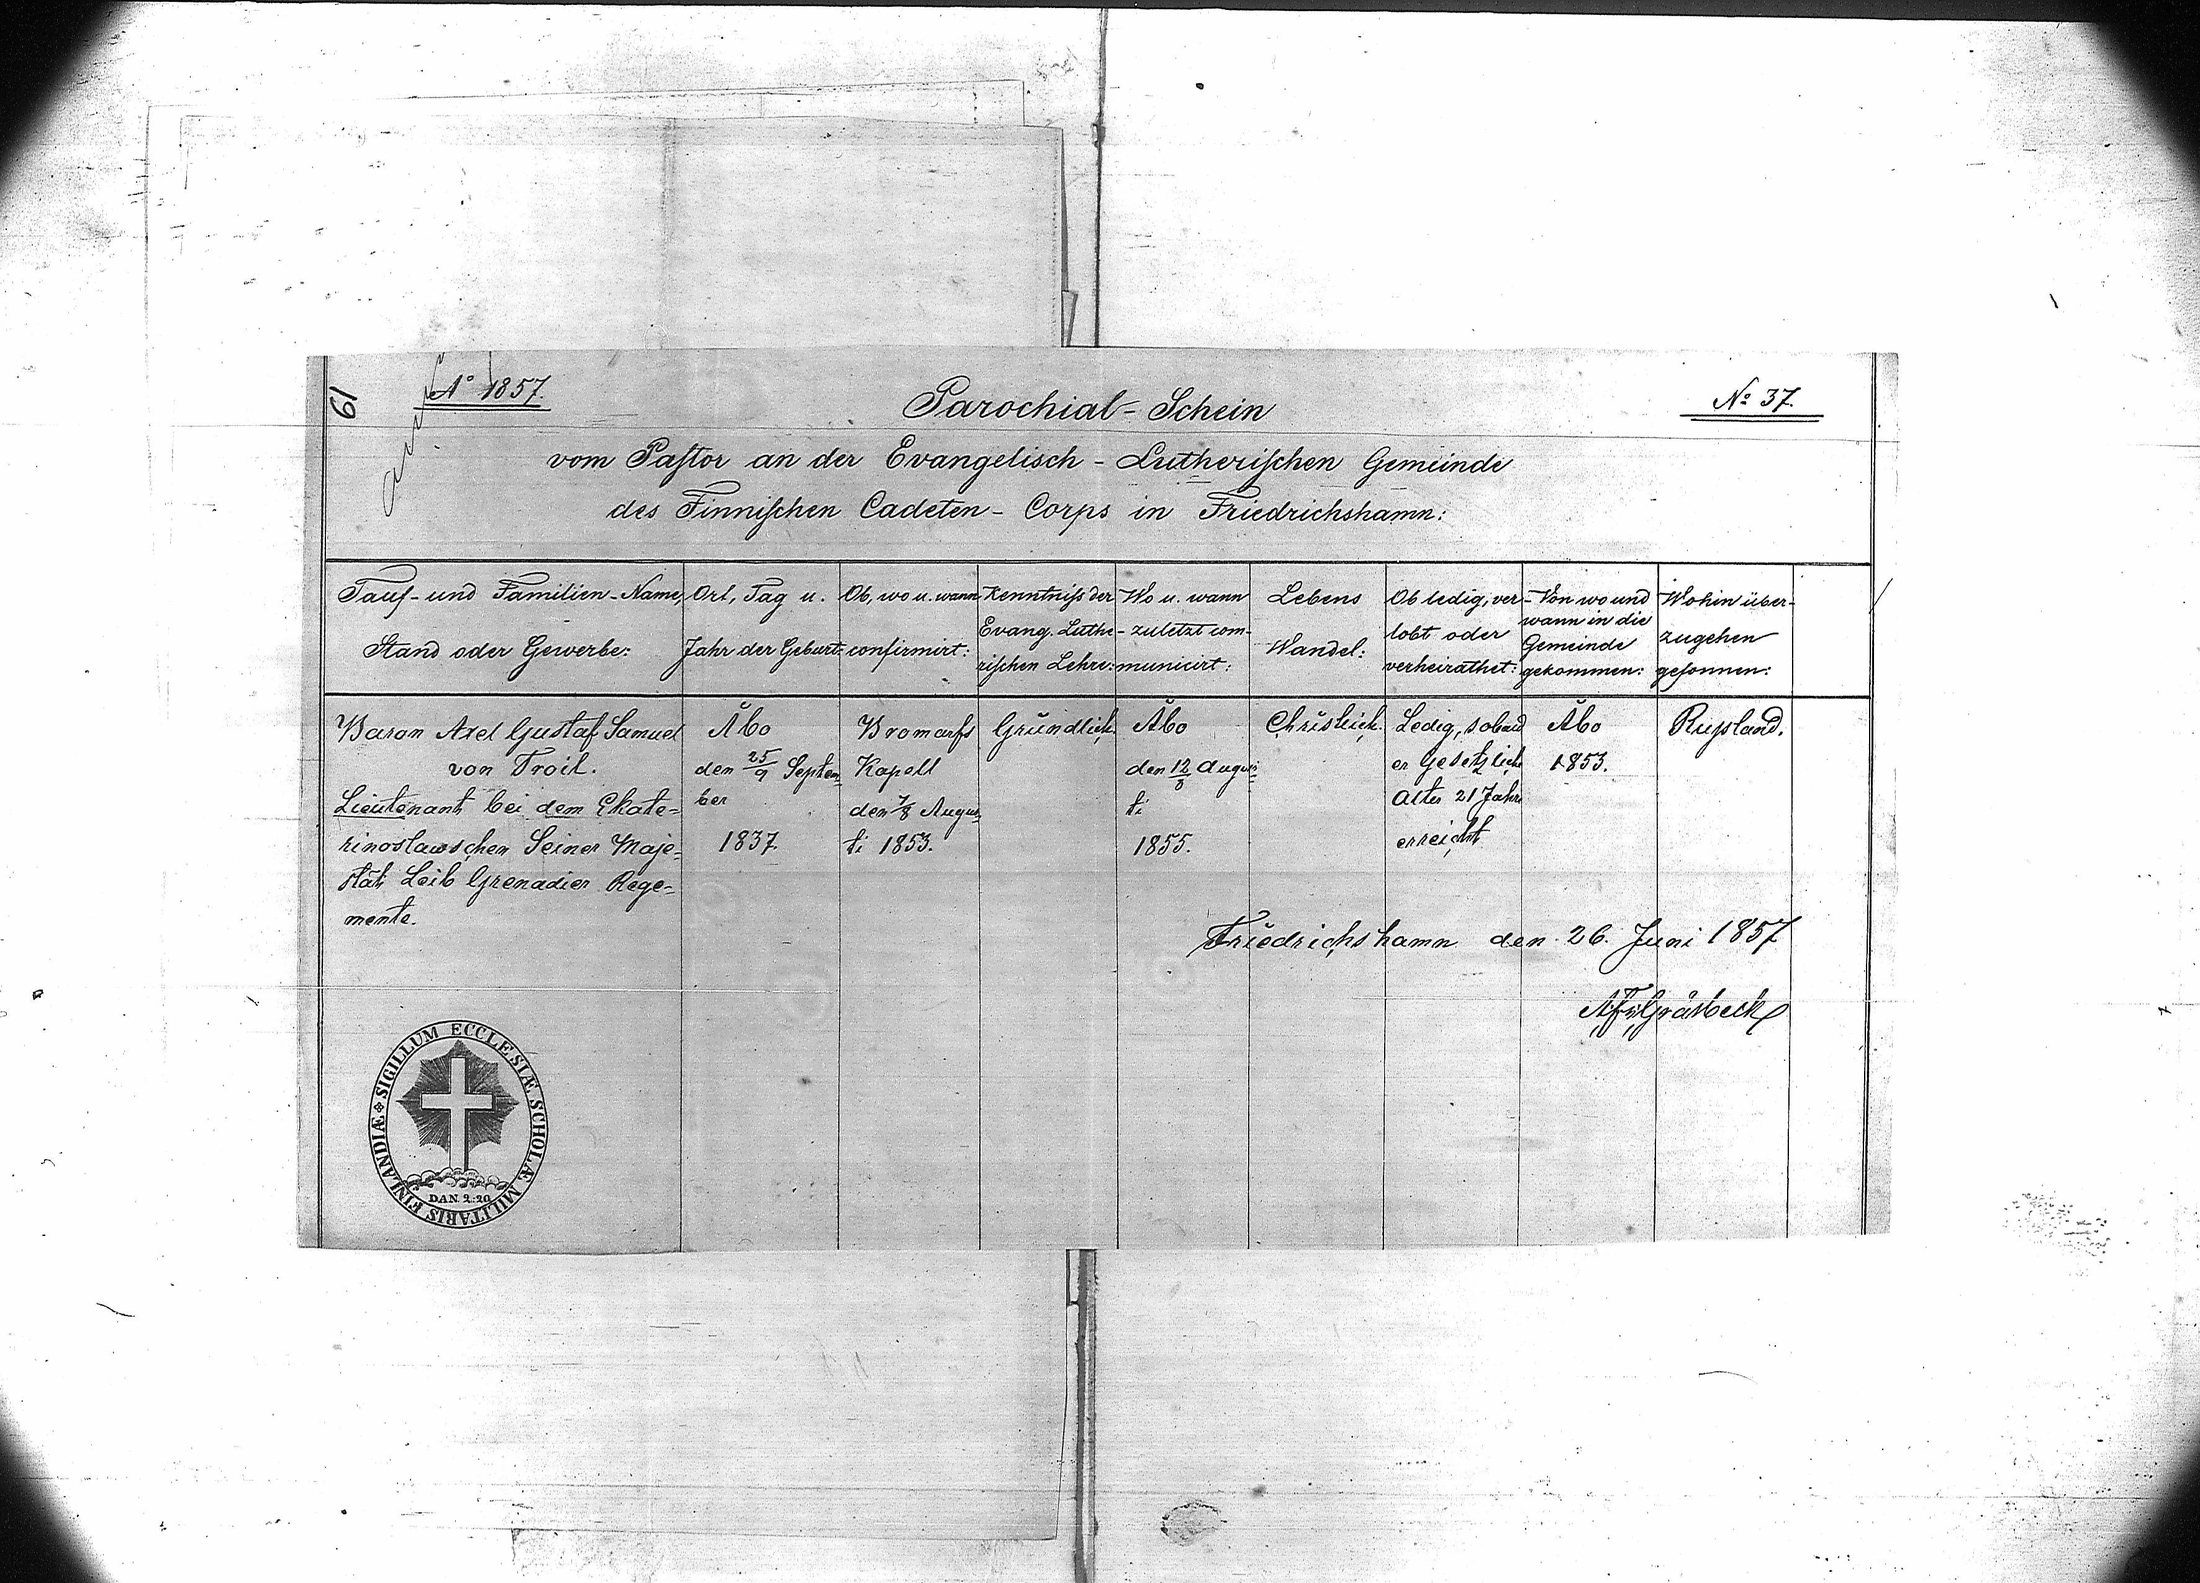 61
Aº 1857.
Nº 37.
Parochial-Schein
vom Paſtor an der Evangelisch-Lutheriſchen Gemeinde
des Finniſchen Cadeten-Corps in Friedrichshamn:
Tauf- und Familien-Name,
Stand oder Gewerbe:
Ort, Tag u.
Jahr der Geburt:
Ob, wo u. wann
confirmirt:
Kenntniſs der
Evang. Luthe-
riſchen Lehre:
Wo u. wann
zuletzt com-
municirt:
Lebens
Wandel:
Ob ledig, ver-
lobt oder
verheirathet:
Von wo und
wann in die
Gemeinde
gekommen:
Wohin über-
zugehen
geſonnen:
Baron Axel Gustaf Samuel
von Troil.
Lieutenant bei dem Ekate=
rinoslawschen Seiner Maje=
stät Leib Grenadier Rege=
mente.
Åbo
den 25/9 Septem
ber
1837.
Bromarfs
Kapell
den 7/8 Augus
ti 1853.
Gründlich.
Åbo
den 12/8 Augus=
ti
1855.
Christlich.
Ledig, sobald
er Gesetzliche
Alter 21 Jahre
erreicht
Åbo
1853.
Ruſsland.
Friedrichshamn den 26. Juni 1857
Gråsbeck
SIGILLUM ECCLESIÆ SCHOLÆ MILITARIS FINLANDIÆ
DAN. 2:20